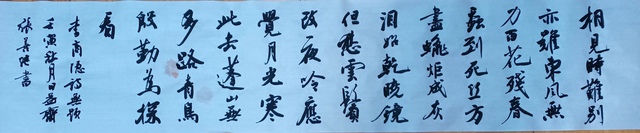 相見時難別
亦難東風無
力百花殘春
蠶到死丝方
盡蠟炬成灰
淚始乾曉鏡
但愁雲鬢
改夜吟應
覺月光寒
此去蓬山無
多路青鳥
殷勤為探
看
李商隱詩無題
壬寅秋月日益齋
張善書